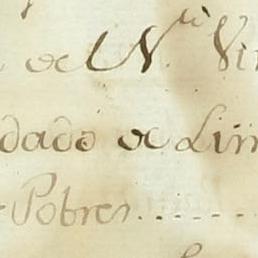 de N.
dado de Lim
Pobres......